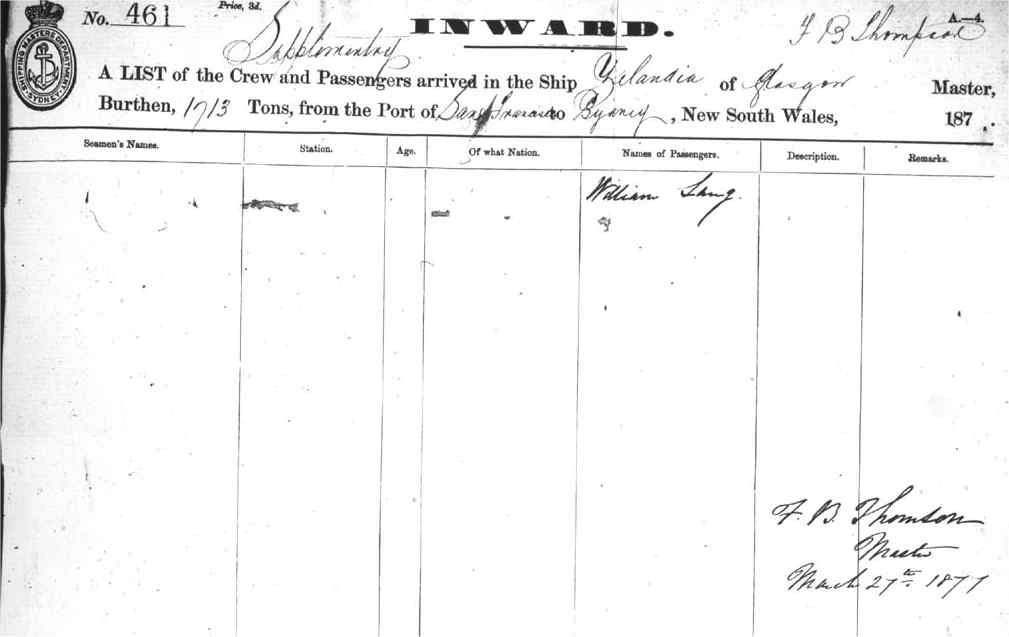 No. 461
Price, 3d.
INWARD.
A.—4.
F B Thompson
Supplementary
A LIST of the Crew and Passengers arrived in the Ship Zelandia of Glasgow Master,
Burthen, 1713 Tons, from the Port of San Francisco to Sydney, New South Wales, 187 .
SHIPPING MASTERS DEPARTMENT SYDNEY
Seamen's Names. Station. Age. Of what Nation. Names of Passengers. Description. Remarks.
William Lang.
F. B. Thomson
Master
March 27th 1877